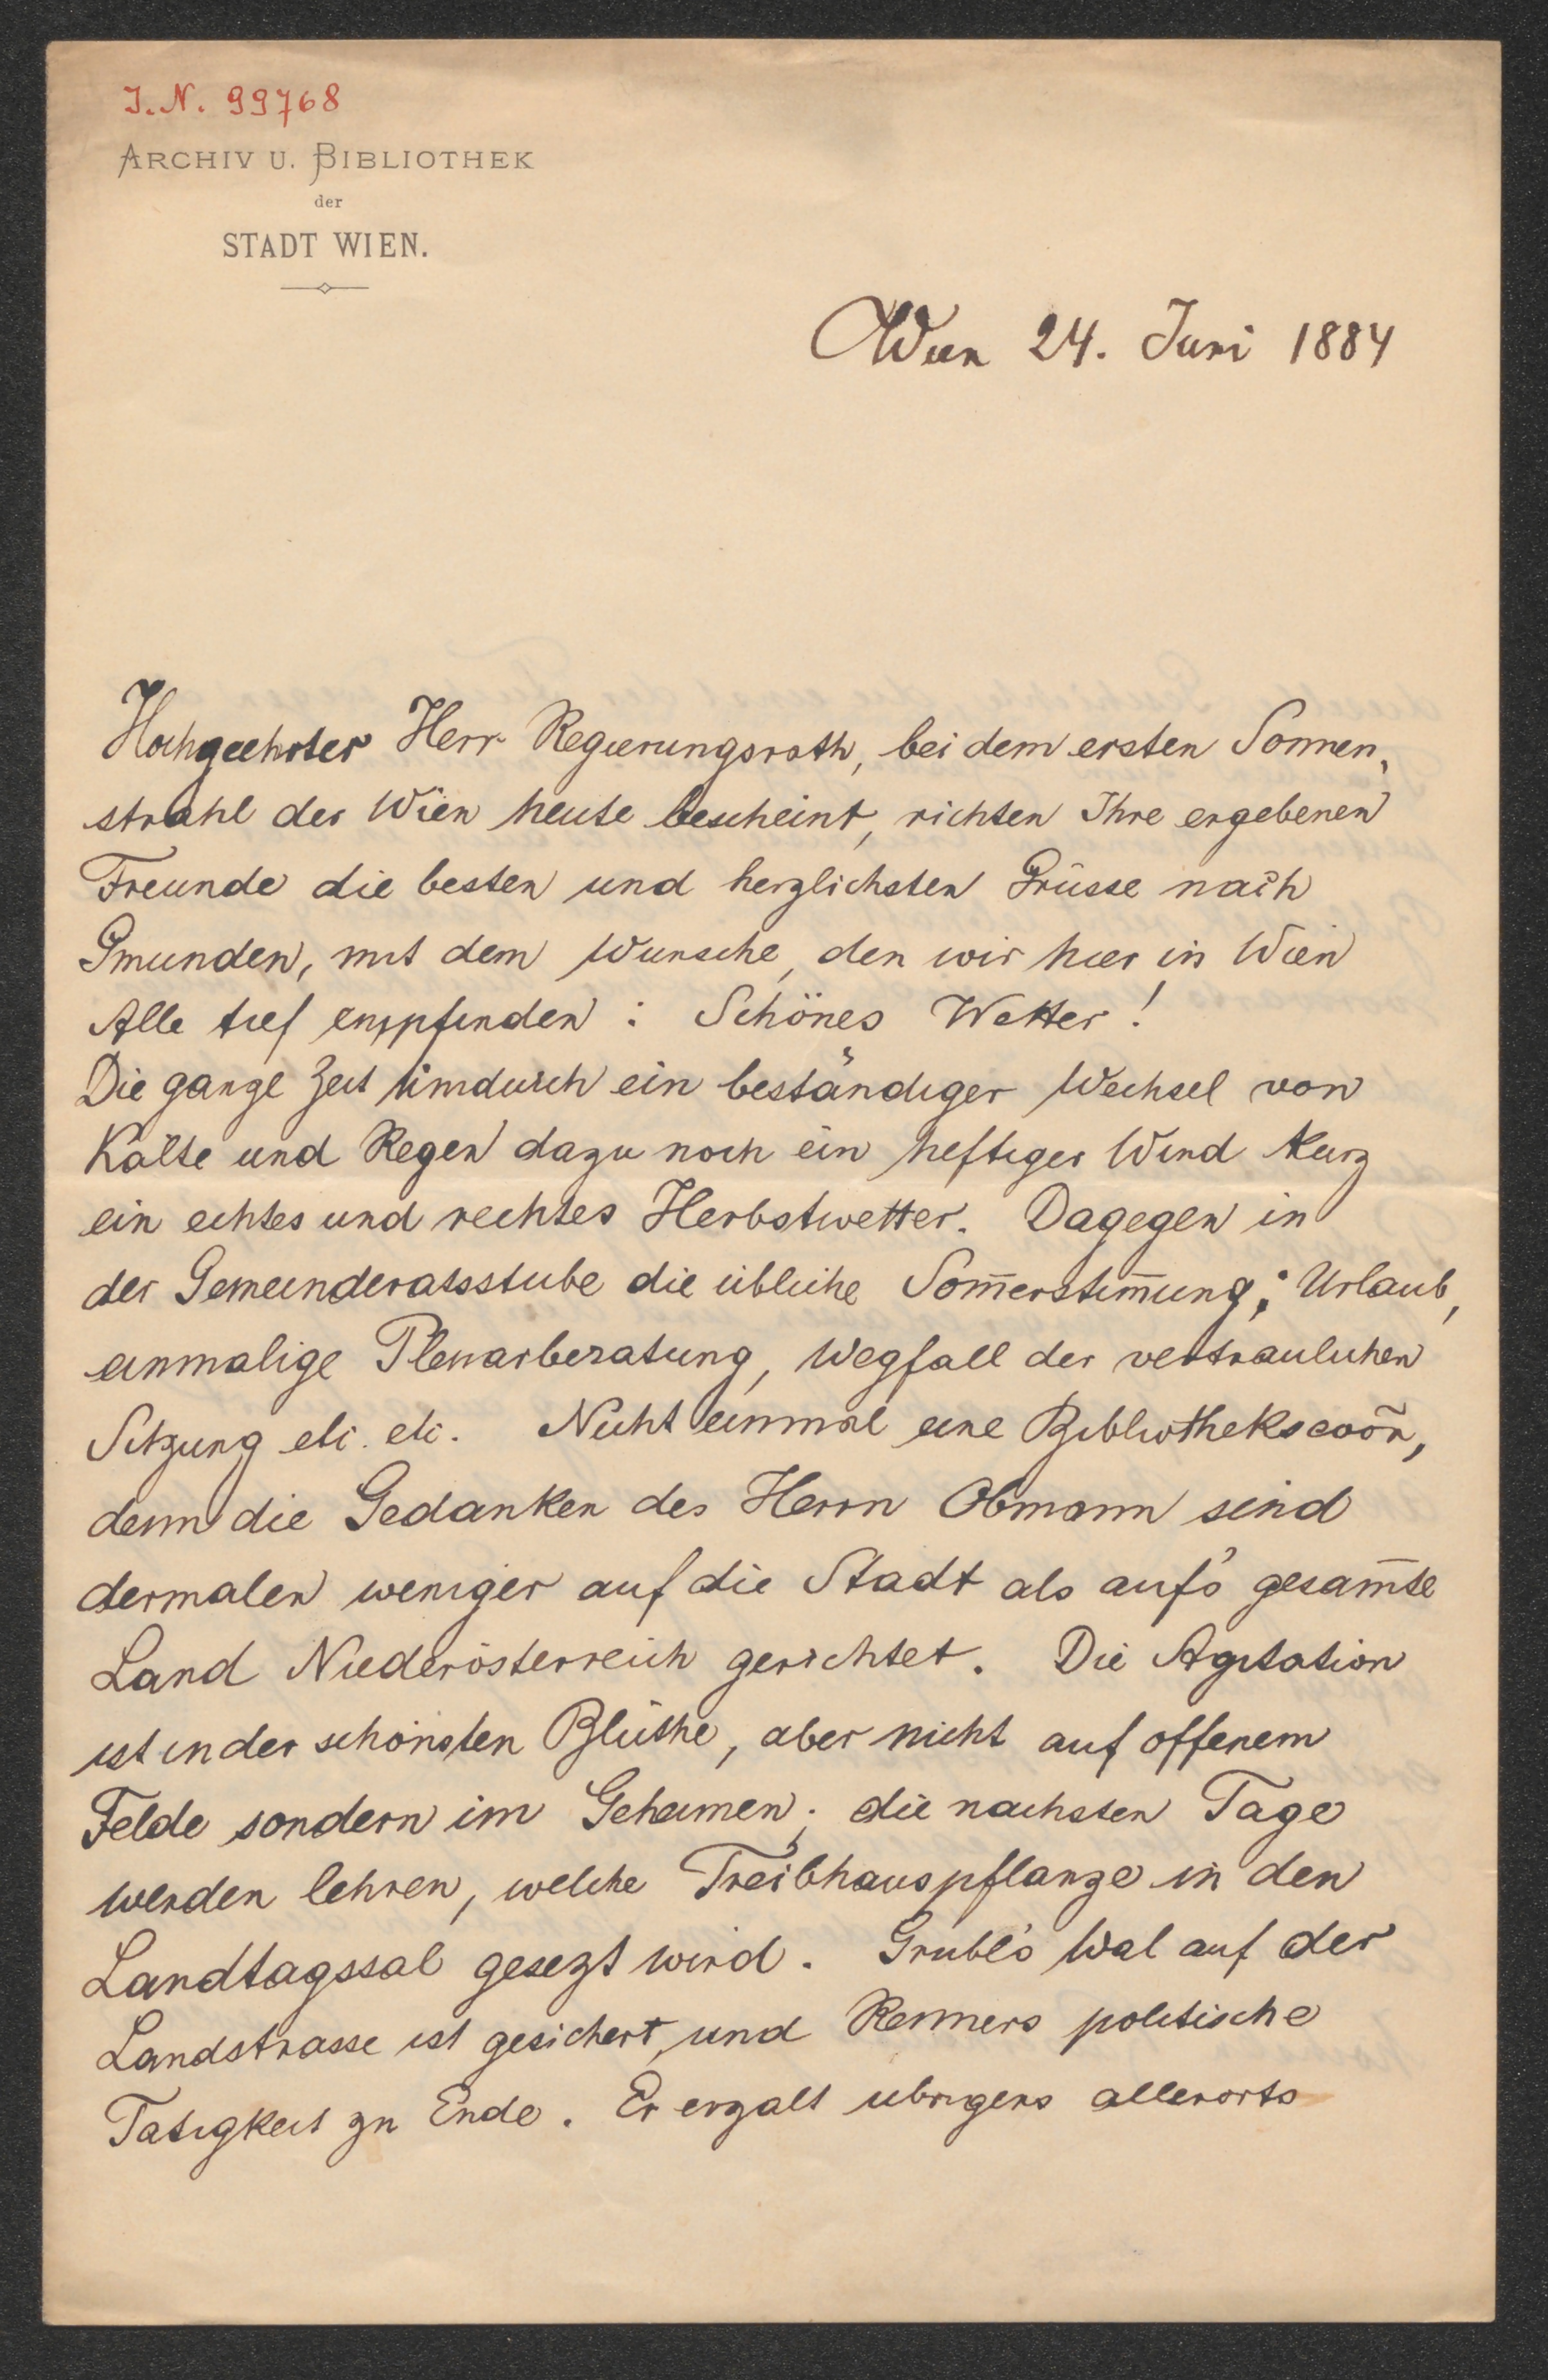 I.N. 99768
ARCHIV U. BIBLIOTHEK
der
STADT WIEN.
Wien 24. Juni 1884
Hochgeehrter Herr Regierungsrath, bei dem ersten Sonnen-
strahl der Wien heute bescheint, richten Ihre ergebenen
Freunde die besten und herzlichsten Grüsse nach
Gmunden, mit dem Wunsche, den wir hier in Wien
Alle tief empfinden: Schönes Wetter!
Die ganze Zeit hindurch ein beständiger Wechsel von
Kälte und Regen dazu noch ein heftiger Wind kurz
ein echtes und rechtes Herbstwetter. Dagegen in
der Gemeinderatsstube die übliche Som̄erstim̄ung; Urlaub,
einmalige Plenarberatung, Wegfall der vertraulichen
Sitzung etc. etc. Nicht einmal eine Bibliothekscoõn,
denn die Gedanken des Herrn Obmann sind
dermalen weniger auf die Stadt als auf's gesam̄te
Land Niederösterreich gerichtet. Die Agitation
ist in der schönsten Blüthe, aber nicht auf offenem
Felde sondern im Geheimen; die nächsten Tage
werden lehren, welche Treibhauspflanze in den
Landtagssal gesezt wird. Grübl's Wal auf der
Landstrasse ist gesichert, und Renners politische
Tätigkeit zu Ende. Er erzält übrigens allerorts